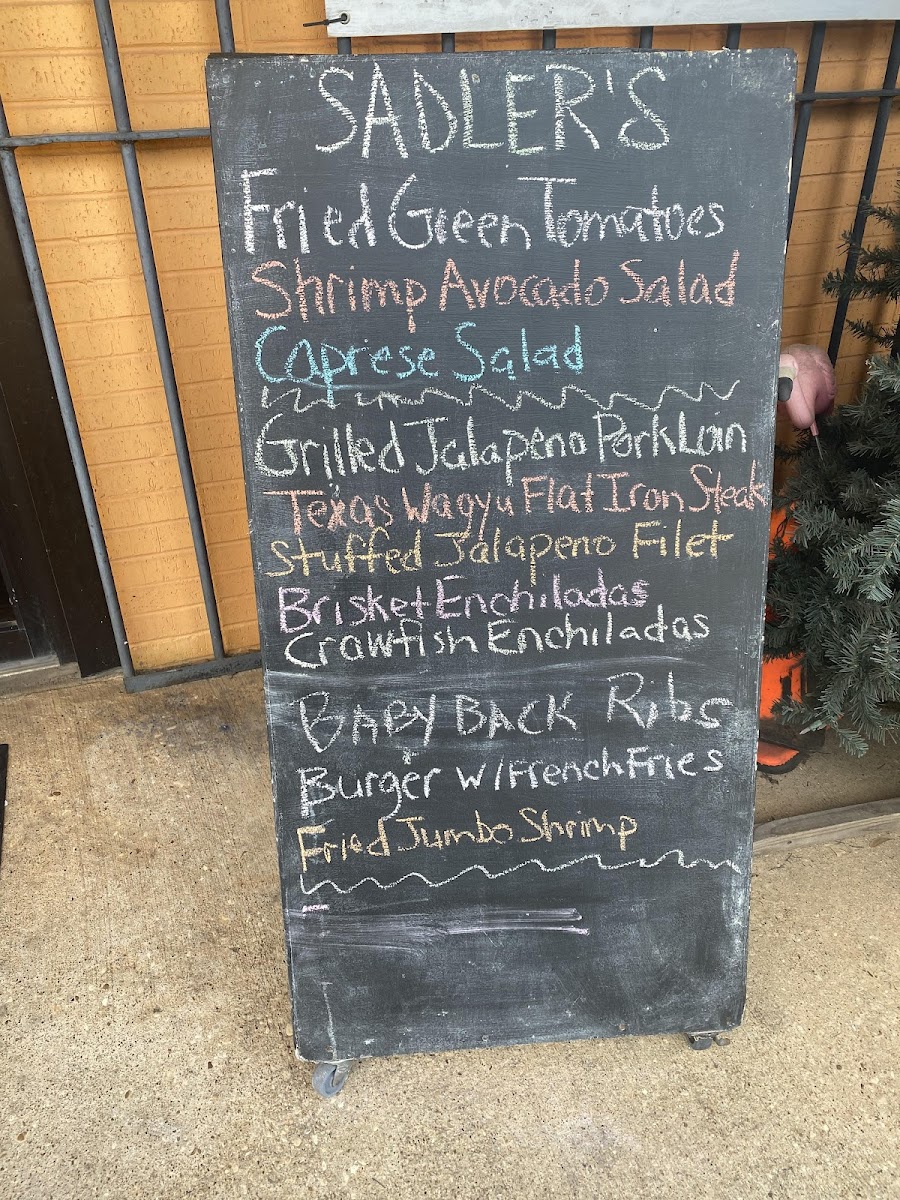 SADLER'S
Fried Green Tomatoes
Shrimp Avocado Salad
Caprese Salad
Grilled Jalapeno Pork Loin
Texas Wagyu Flat Iron Steak
Stuffed Jalapeno Filet
Brisket Enchiladas
Crawfish Enchiladas
BABY BACK Ribs
Burger W/French Fries
Fried Jumbo Shrimp